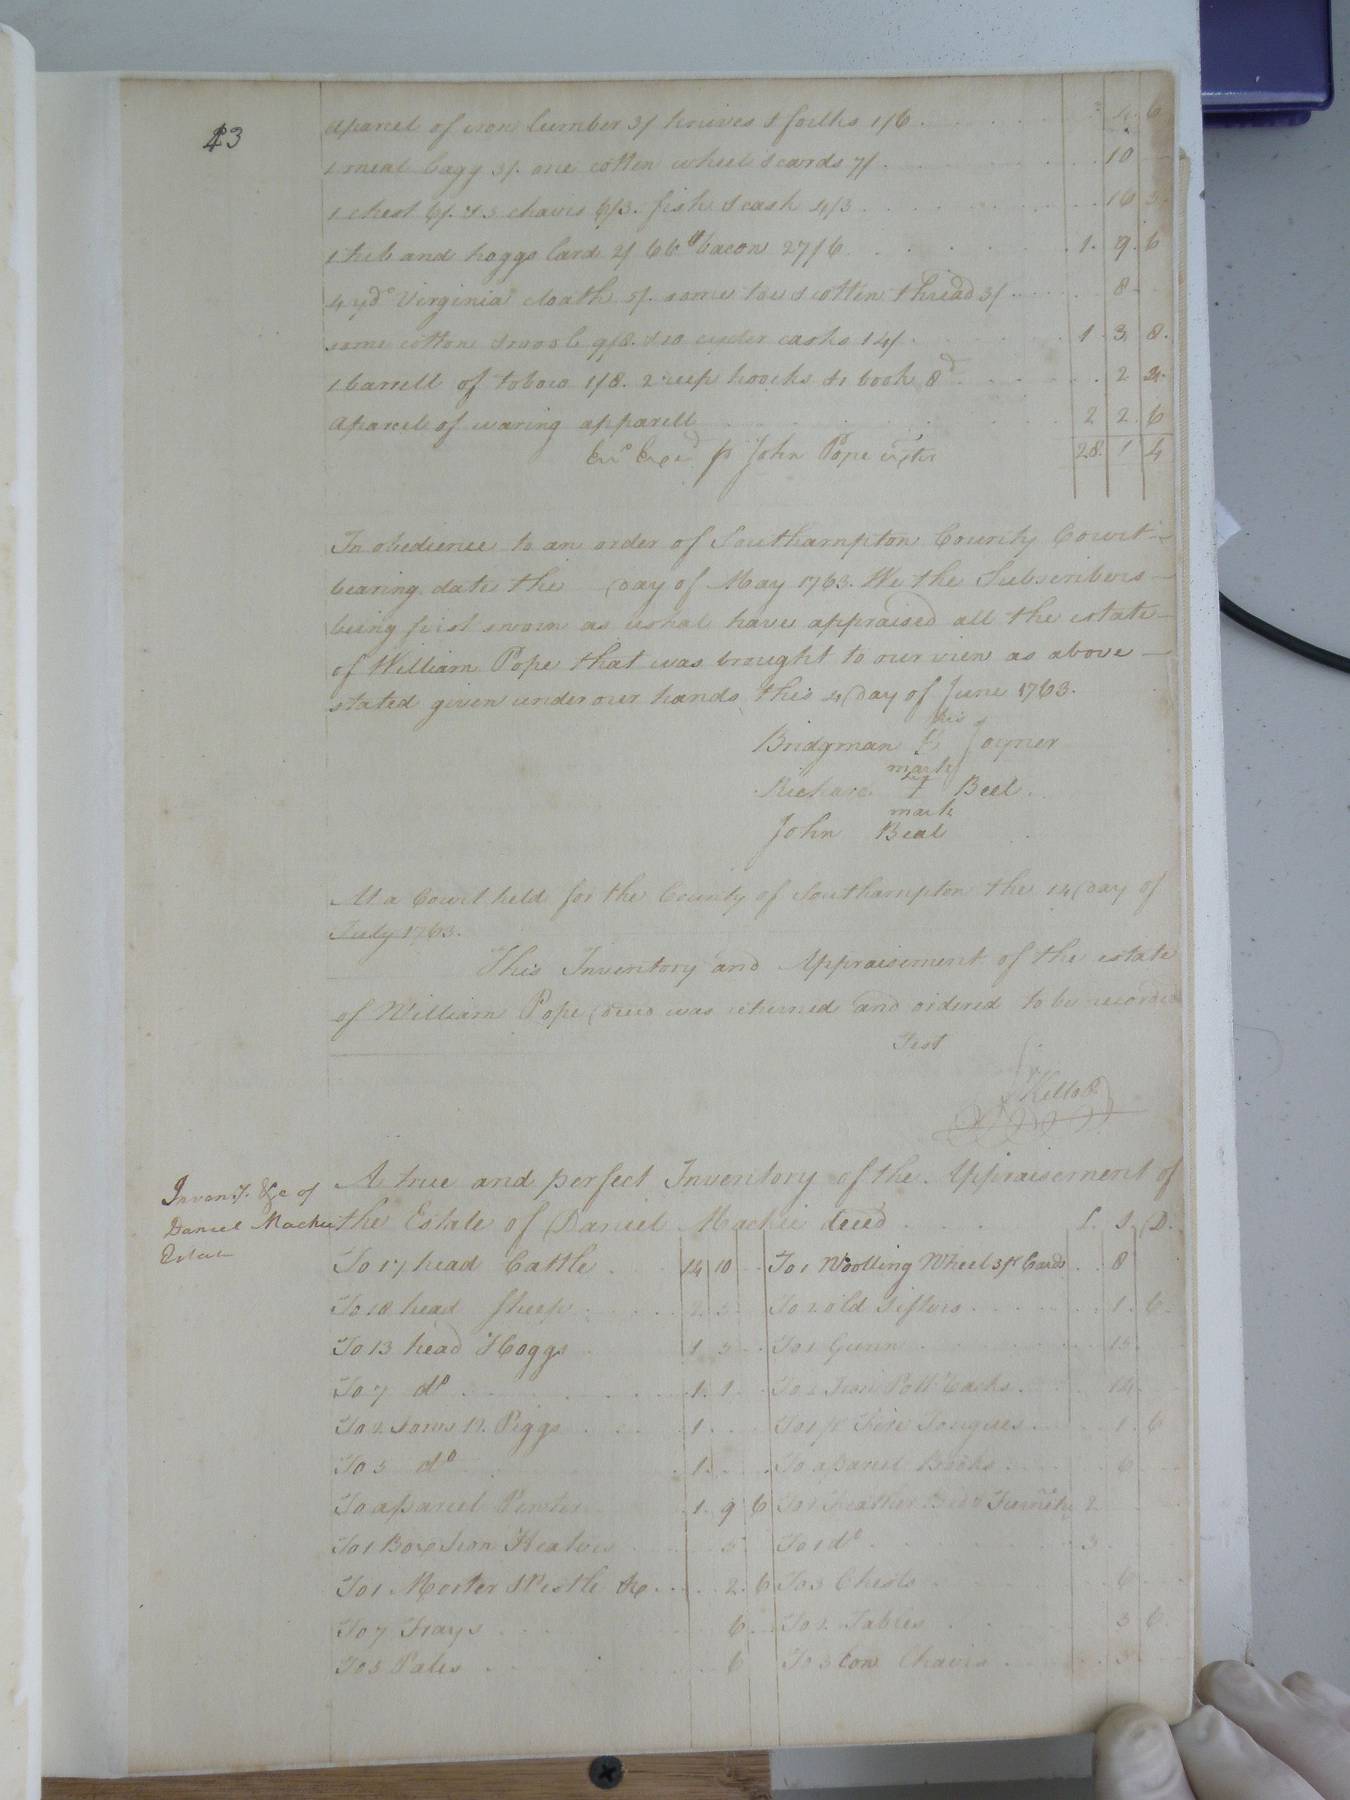 23
aparcel of iron lumber 3/ knives & forks 1/6 4. 6
1 meal bagg 3/. one cotten wheel & cards 7/ 10
1 chest 6/. & 3 chairs 6/3. fish & cask 4/3 16 3.
1 tub and hoggs lard 2/ 66 lb bacon 27/6 1. 9. 6
4 yds Virginia cloath 5/. some tow & cotten thread 3/ 8
some cotton & wool 9/8. & 10 cyder casks 14/ 1. 3. 8.
1 barrell of 1/8. 2 reep hoocks & 1 book 8d 2 4.
aparcel of waring apparell 2 2. 6
John Pope 28. 1 4
In obedience to an order of Southampton County Court
bearing date the Day of May 1763. We the Subscribers
being first sworn as usual have appraised all the estate
of William Pope that was brought to our view as above
stated given under our hands this 4 Day of June 1763.
his
Bridgman Joyner
mark
Richard Beel.
mark
John Beal
At a Court held for the County of Southampton the 14 Day of
July 1763.
This Inventory and Appraisement of the estate
of William Pope Decd was returned and ordered to be recorded
Test
Invent. &c of
Daniel Mackie
Estate
A true and perfect Inventory of the Appraisement of
the Estate of Daniel Mackie deced L. S. D.
To 17 head Cattle 14 10 To 1 Woolling Wheel 3 pr Cards 8
To 18 head Sheep 2. 5 To 2 old Sifters 1. 6
To 13 head Hoggs 1 5 To 1 Gunn 15
To 7 do 1. 1 To 2 Iron Potts & 14
To 2 Sows 12 Piggs 1. To 1 pr Fire Tongues 1. 6
To 5 do 1. To aparcel Books 6
To aparcel Pewter 1. 9 6 To 1 Feather Bed & 2
To 1 Box Iron & Heaters 5 To 1 do 3
To 1 Morter & Pestle &c 2. 6 To 3 Chests 6
To 7 Trays 6. To 2 Tables 3 6
To 5 Pales 6 To 3 Chairs 3